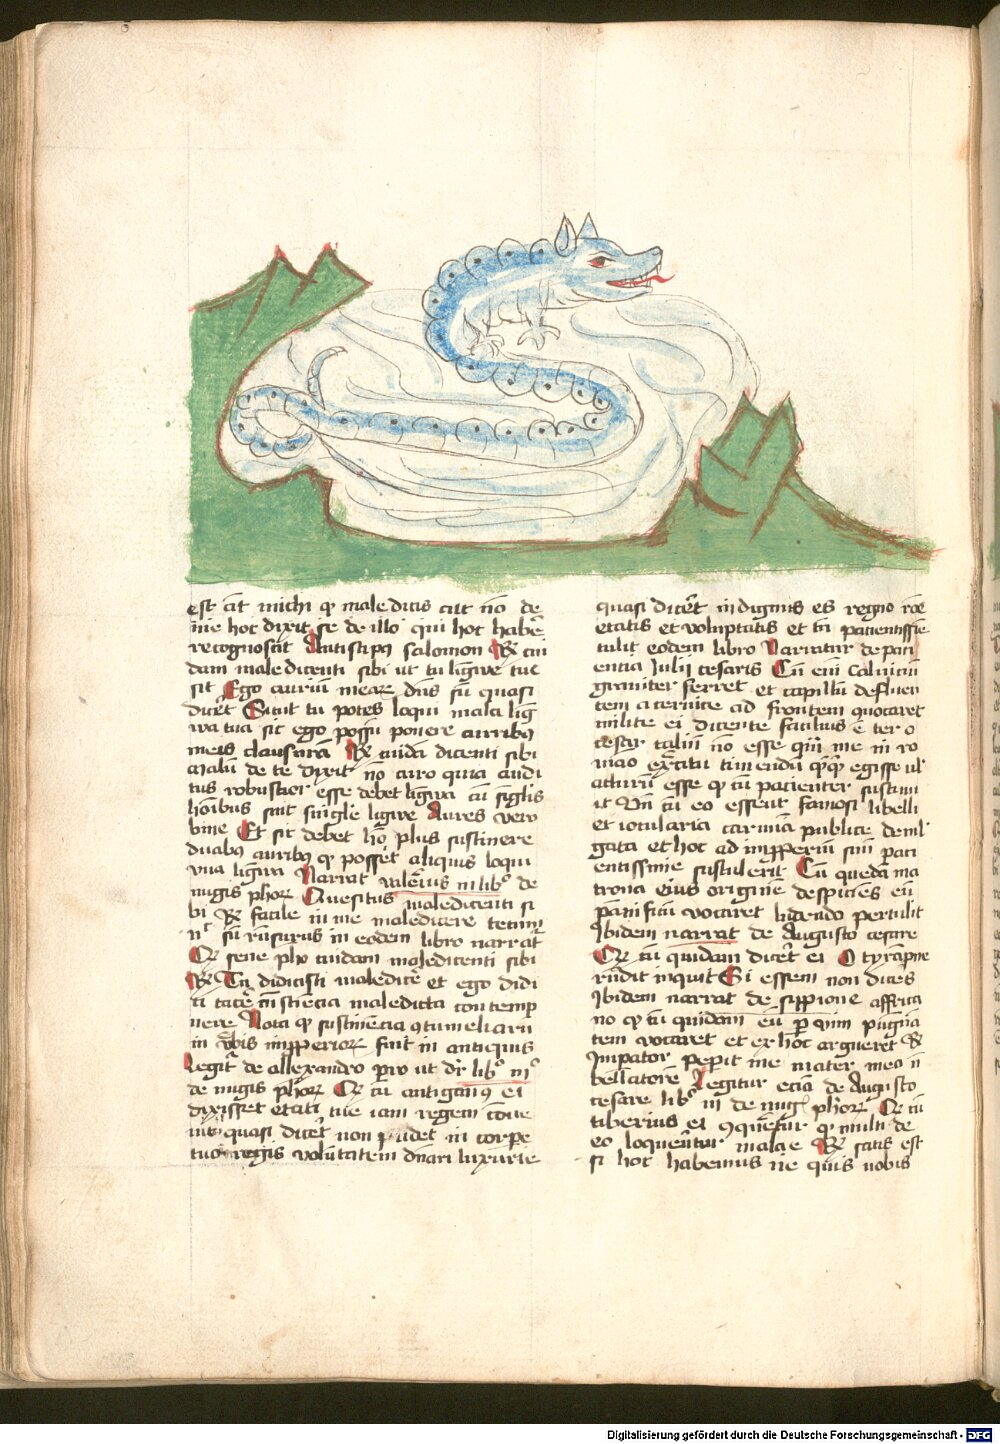 est cit̄ michi qꝫ maledicis cut nō de
me hoc dixit se de illo qui hoc habēt
recognoscit Antistipꝫ salomon Rͥ cui
dam maledicenti sibi ut tu ligwe tue
sic Ego auriū meaꝝ dn̄s sū quasi
dic̄et Sicut tu potes loqui mala lig
wa tua sic ego possū ponere auribꝫ
meis clausurā Rͥ cuidā dicenti sibi
malū de te dixit nō curo quia audi
tus robustior esse debet ligwa cū singlis
hoībus sint singl̄e ligwe Aures vero
bine Et sic debet hō plus sustinere
duabꝫ auribꝫ qꝫ posset aliquis loqui
vna ligwa Narrat valerius in libͦ de
nugis phōꝝ Quesitus maledicenti si
bi Rͥ facile in me maledicere
sū rūsurus in eodem libro narrat̄
Qꝝ sene phō cuidam maledicenti sibi
Rͥ Tu didicisti maledicē et ego didi
ci tacē m̄ stiēcia maledicta contemp
nere Nota qꝫ sustinēcia ꝯtumeliarū
in v̄bis impperioꝝ fuit in antiquis
Legit̄ de allexandro pͥmo ut dr̄ libͦ iiiͦ
de nugis phōꝝ Qꝝ cū antigonꝯ ei
dixisset etati tue iam regem cōue
nit quasi dic̄et non pudet in corpe
tuo regis volūtatem dn̄ari luxurie
quasi dic̄et indignus es regno rōe
etatis et voluptatis et tn̄ pacientissīe
tulit eodem libro Narratur de paci
entia Julii cesaris Cū em̄ caluiciū
grauiter ferret et capillū defluen
tem a ceruice ad frontem quocaret
milite ei dicente facilius ē ter o
cesar caluū nō esse qm̄ me in ro
mao exc̄itu timendū qꝫqꝫ egisse ul̄
acturū esse qꝫ tn̄ pacienter sustinu
it Vn̄ cū eo essent famosi libelli
et iocularia carmīa publice deuul
gata et hoc ad impperiū suū paci
entissime sustulerit Cū quedā ma
trona eius originē despiciēs eū
panificū vocaret ridendo pertulit
Ibidem narrat de Augusto cesare
Qꝝ cū quidam dic̄et ei O tyrāpne
rn̄dit inquit Si essem non dices
Ibidem narrat de scipione affrica
no qꝫ cū quidam eū p̄ vim pugna
tem vocaret et ex hoc argueret Rͥ
Imperator peperit me mater mea n̄
bellatorē Legitur ecia de Augusto
cesare libͦ iii de nuḡ phōꝝ Qꝝ cū
tiberius ei ꝯquēret̄ur qꝫ multi de
eo loquer̄tur male Rͥ satis est
si hoc habemus ne quis nobis
Digitalisierung gefördert durch die Deutsche Forschungsgemeinschaft - DFG